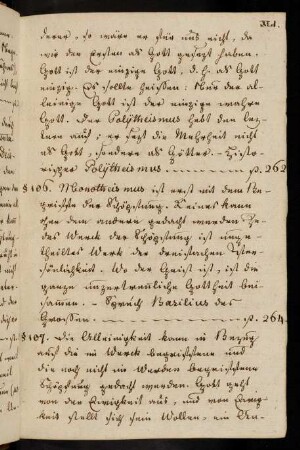 XLI.
derer, so wäre er für uns nicht, da
wir den Ersten als Gott gesagt haben.
Gott ist der einzige Gott, d. h. als Gott
einzig. Es sollte heißen: Nur der al-
leinige Gott ist der einzige wahre
Gott. Der Polÿtheismus hebt den letz-
tern auf; er sagt die Mehrheit nicht
als Gott, sondern als Götter. – Histo-
rischer Polÿtheismus p. 262
§ 106. Monotheismus ist erst mit dem Be-
griffe der Schöpfung. Keines kann
ohne dem andern gedacht werden. Je-
des Werck der Schöpfung ist unge-
theiltes Werk der dreifachen
sönlichkeit. Wo der Geist ist, ist die
ganze unzertrennliche Gottheit bei-
sammen. – Spruch Basilius des
Grossen. p. 264
§ 107. Die Alleinigkeit kann in Bezug
auf die im Werck begriffene und
die noch nicht im Werden begriffene
Schöpfung gedacht werden. Gott geht
von der Ewigkeit aus, und von Ewig-
keit stellt sich sein Wollen, ein